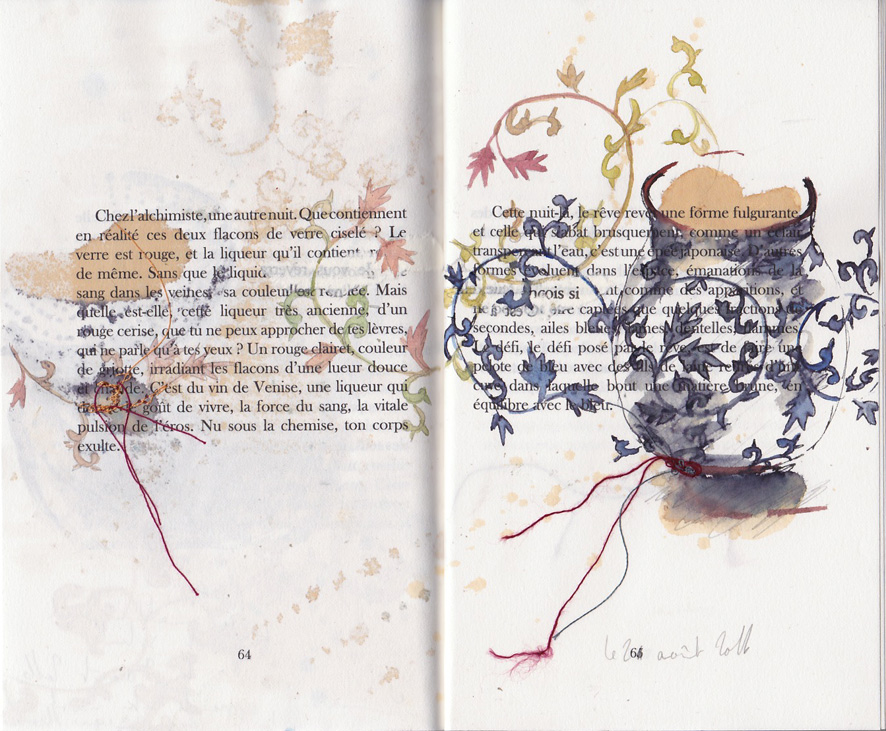 Chez l'alchimiste, une autre nuit. Que contiennent
en réalité ces deux flacons de verre ciselé ? Le
verre est rouge, et la liqueur qu'il contient
de même. Sans que le
sang dans les veines, sa couleur Mais
quelle est-elle, cette liqueur très ancienne, d'un
rouge cerise, que tu ne peux approcher de tes lèvres,
qui ne parle qu'à tes yeux ? Un rouge clairet, couleur
de griotte, irradiant les flacons d'une lueur douce
C'est du vin de Venise, une liqueur qui
goût de vivre, la force du sang, la vitale
pulsion de l'éros. Nu sous la chemise, ton corps
exulte.
64
Cette nuit-là, le rêve revêt une forme fulgurante,
et celle qui s'abat brusquement, comme un éclair
transperçant l'eau, c'est une épée japonaise. D'autres
formes évoluent dans l'espace, émanations de la
si comme des apparitions, et
ne que quelques fractions de
secondes, ailes bleues, lames, dentelles, flammes.
défi, le défi posé par le rêve, est de faire un
pelote de bleu avec des fils de
cuve dans laquelle bout une matière brune, en
équilibre avec le bleu.
août